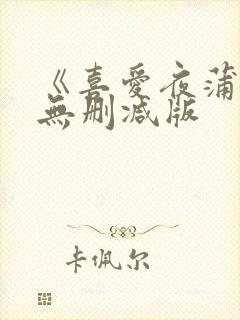 《喜爱夜蒲
無删减版
卡佩尔